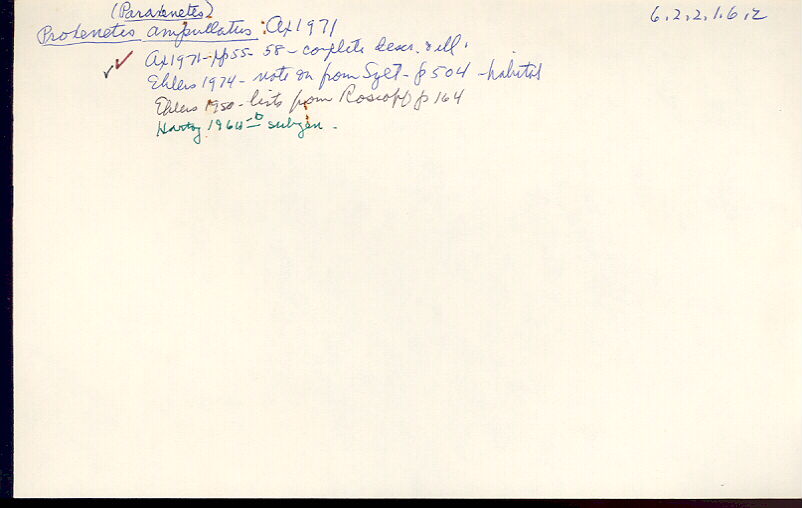 (Paraxenetes) 6.2.2.1.6.2
Proxenetes ampullatus : Ax 1971
Ax 1971 - pp 55 - 58 - complete descr. & ill.
Ehlers 1974 - note on from Sylt - p 504 - habitat
Ehlers 1980 - lists from Roscoff p 164
Hartog 1964 - subgen.